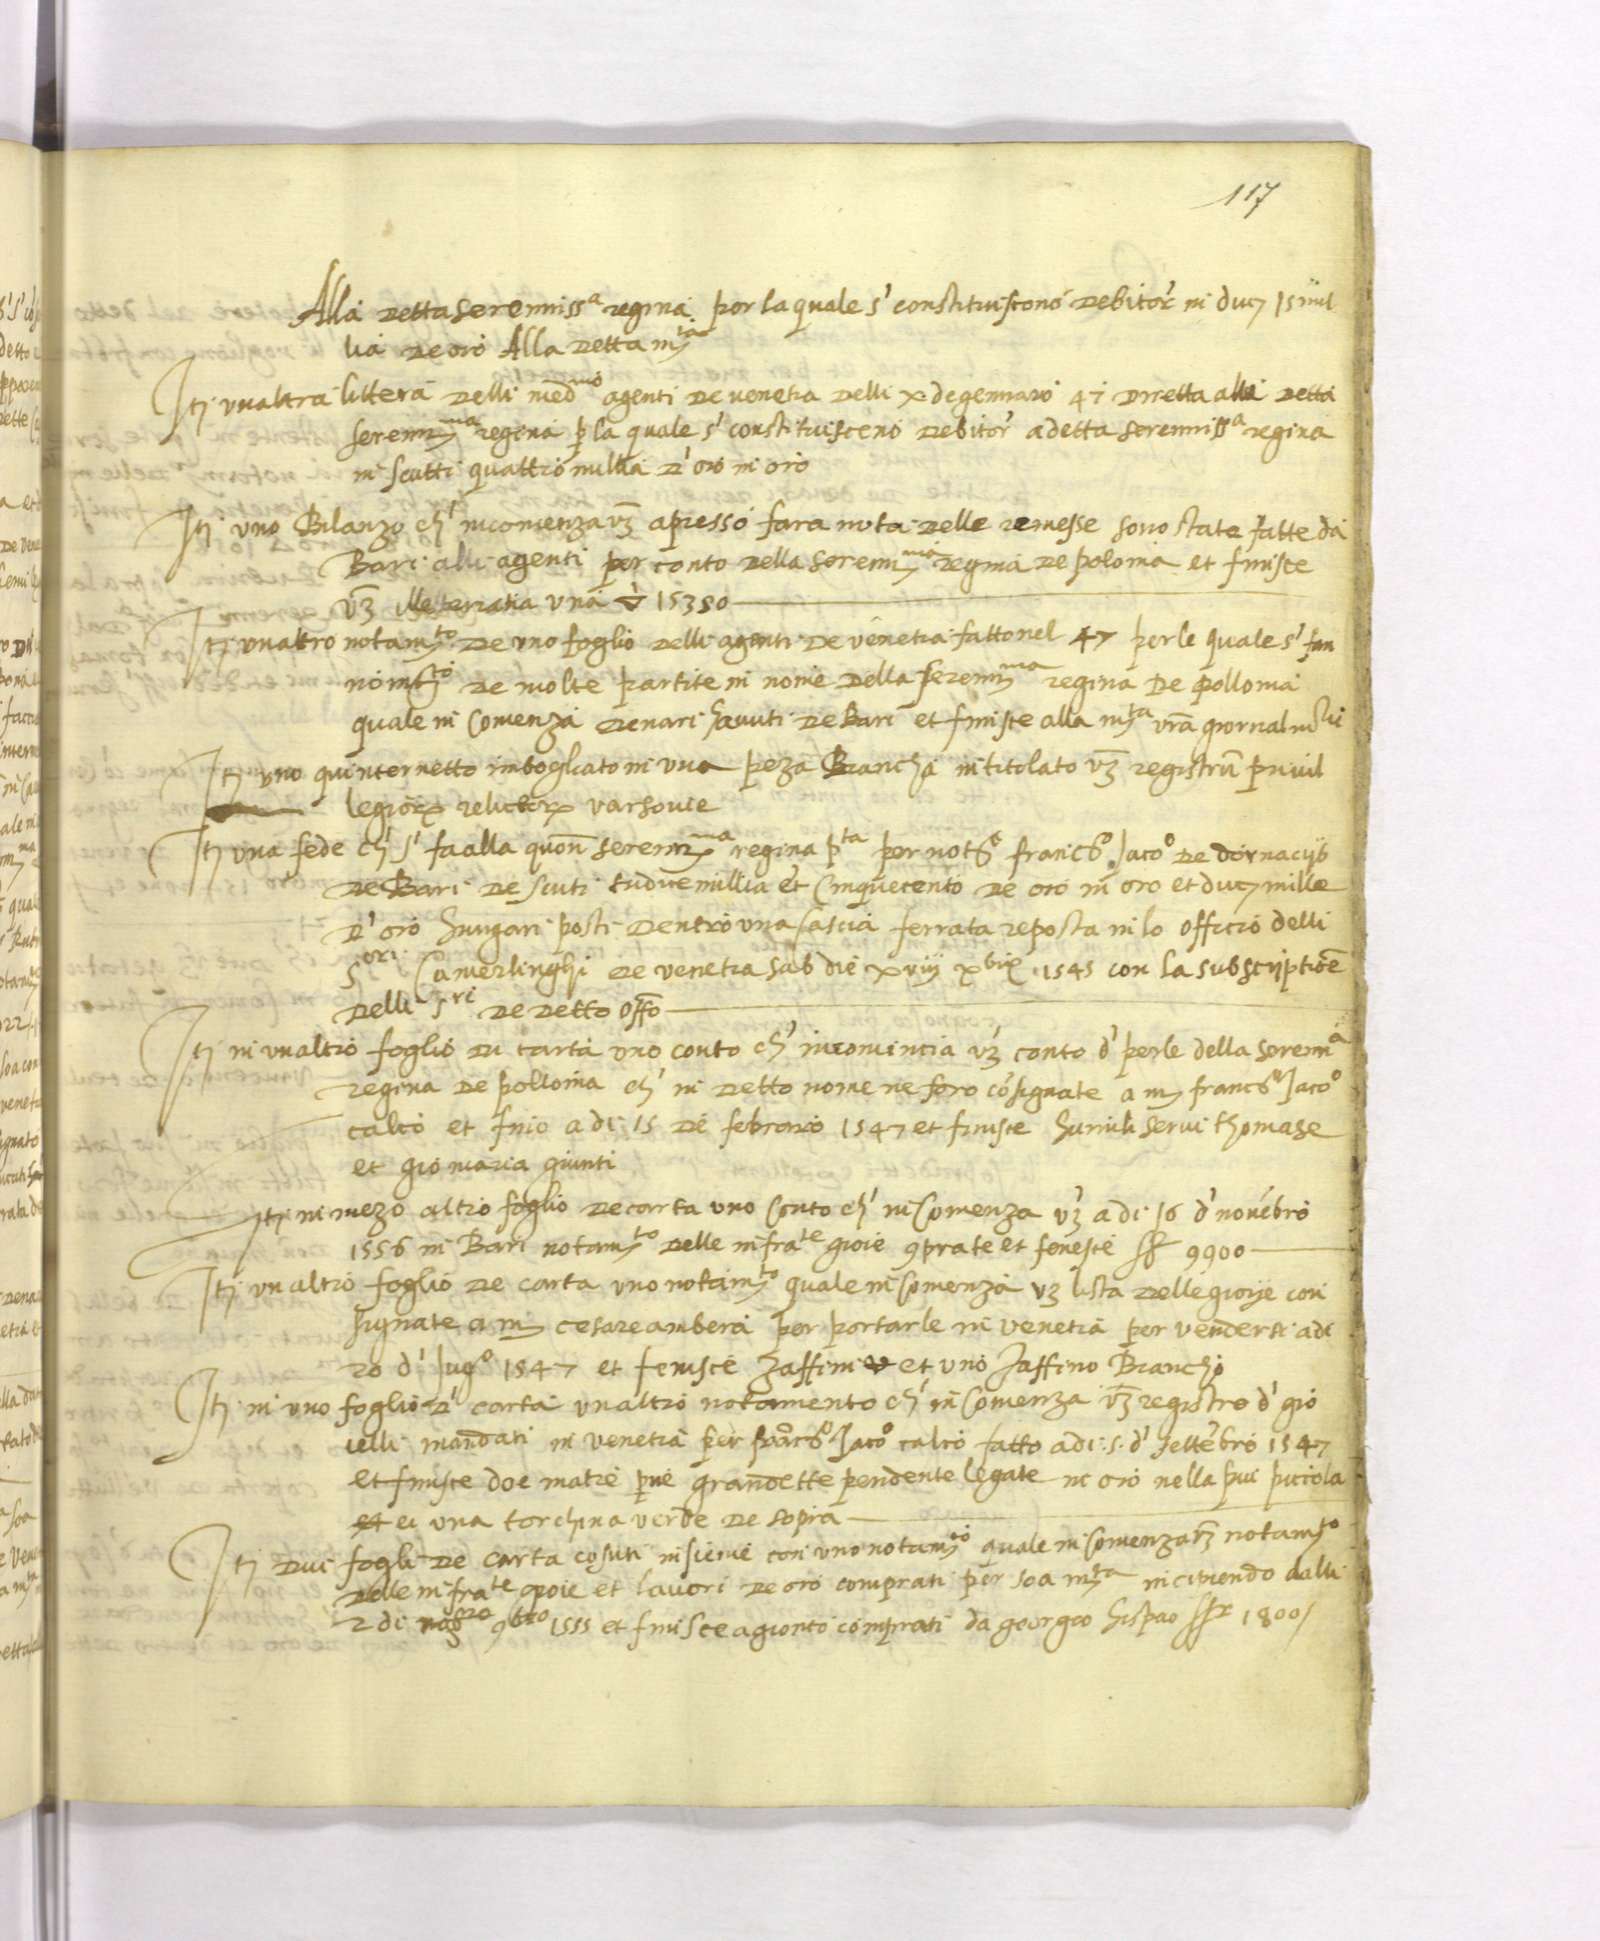 117
Alla detta sereniss.a regina per la quale s' constituiscono debitor' in duc. 15 mil
lia de oro Alla detta m.ta
Itē unaltra littera delli med.mi agenti de venetia delli x de gennaro 47 diretta alla detta
seren.ma regina p la quale s' constituisceno debitor' a detta sereniss.a regina
in scutti quattro millia d' oro in oro
Itē uno Bilanzo ch' incomenza vz apresso fara nota delle remesse sono state fatte da
Bari alli agenti per conto della seren.ma regina de polonia et finisce
vz una 15380
Itē unaltro notam.to de uno foglio delli agenti de venetia fatto nel 47 per le quale s' fan
no m.to de molte partite in nome della seren.ma regina de pollonia
quale in comenza denari havuti de Bari et finisce alla m.ta vra
Itē uno quinternetto imbogliato in una peza Biancha intitolato vz registrū privil
legior varsovie
Itē una fede ch' s' fa alla quon seren.ma regina p.ta per not.o franc.o Jac.o de
de Bari de scuti millia et Cinquecento de oro in oro et duc. mille
d' oro hungari posti dentro una cascia ferrata reposta in lo officio delli
S.ori Camerlinghi de venetia sub die xviij xbris 1545 con la subscriptiōe
delli S.ri de detto offo
Itē in unaltro foglio di carta uno conto ch' incomincia vz conto d' perle della serenma
regina de pollonia ch' in detto nome ne foro cōsignate a m. franc.o Jac.o
calco et finio a di 15 de febraro 1547 et finisce humili servi thomase
et gio maria giunti
Itē in mezo altro foglio de carta uno conto ch' in comenza vz a di 16 d' novēbro
1556 in Bari notam.to delle infra.te gioie cōprate et fenesce 9900
Itē un altro foglio de carta uno notam.to quale in comenza vz lista delle gioije con
signate a m. cesare ambera per portarle in venetia per vendersi adi
20 d' Jug.o 1547 et fenisce zaffini et uno zaffino Biancho
Itē in uno foglio d' carta unaltro notamento ch' in comenza vz registro d' gio
ielli mandati in venetia per franc.o Jac.o calco fatto adi 5 d' settēbro 1547
et finisce doe matre p'ne grandette pendente legate in oro nella piu piciola
ei una torchina verde de sopra
Itē dui fogli de carta cosuti insieme con uno notam.to quale in comenza vz notam.to
delle infra.te gioie et lavori de oro comprati per soa m.ta incipiendo dalli
2 di 9bro 1555 et finisce agionto comprati da georgio hispao 1800